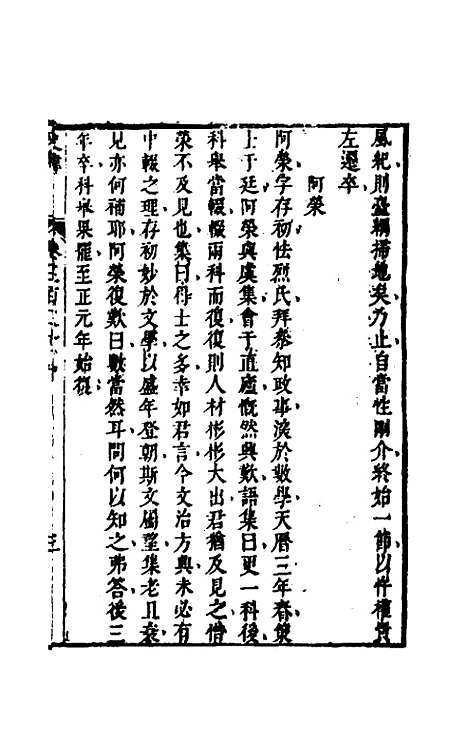 風紀則臺綱掃地矣乃止自當性剛介終始一節以忤權貴
左遷卒
阿榮
阿榮字存初怯烈氏拜叅知政事深於數學天曆三年春策
士于廷阿榮與虞集會于直廬慨然興歎語集曰更一科後
科舉當輟輟兩科而復復則人材彬彬大出君猶及見之惜
榮不及見也集曰得士之多幸如君言今文治方興未必有
中輟之理存初妙於文學以盛年登朝斯文屬望集老且衰
見亦何補耶阿榮復歎曰數當然耳問何以知之弗答後三
年卒科舉果罷至正元年始復